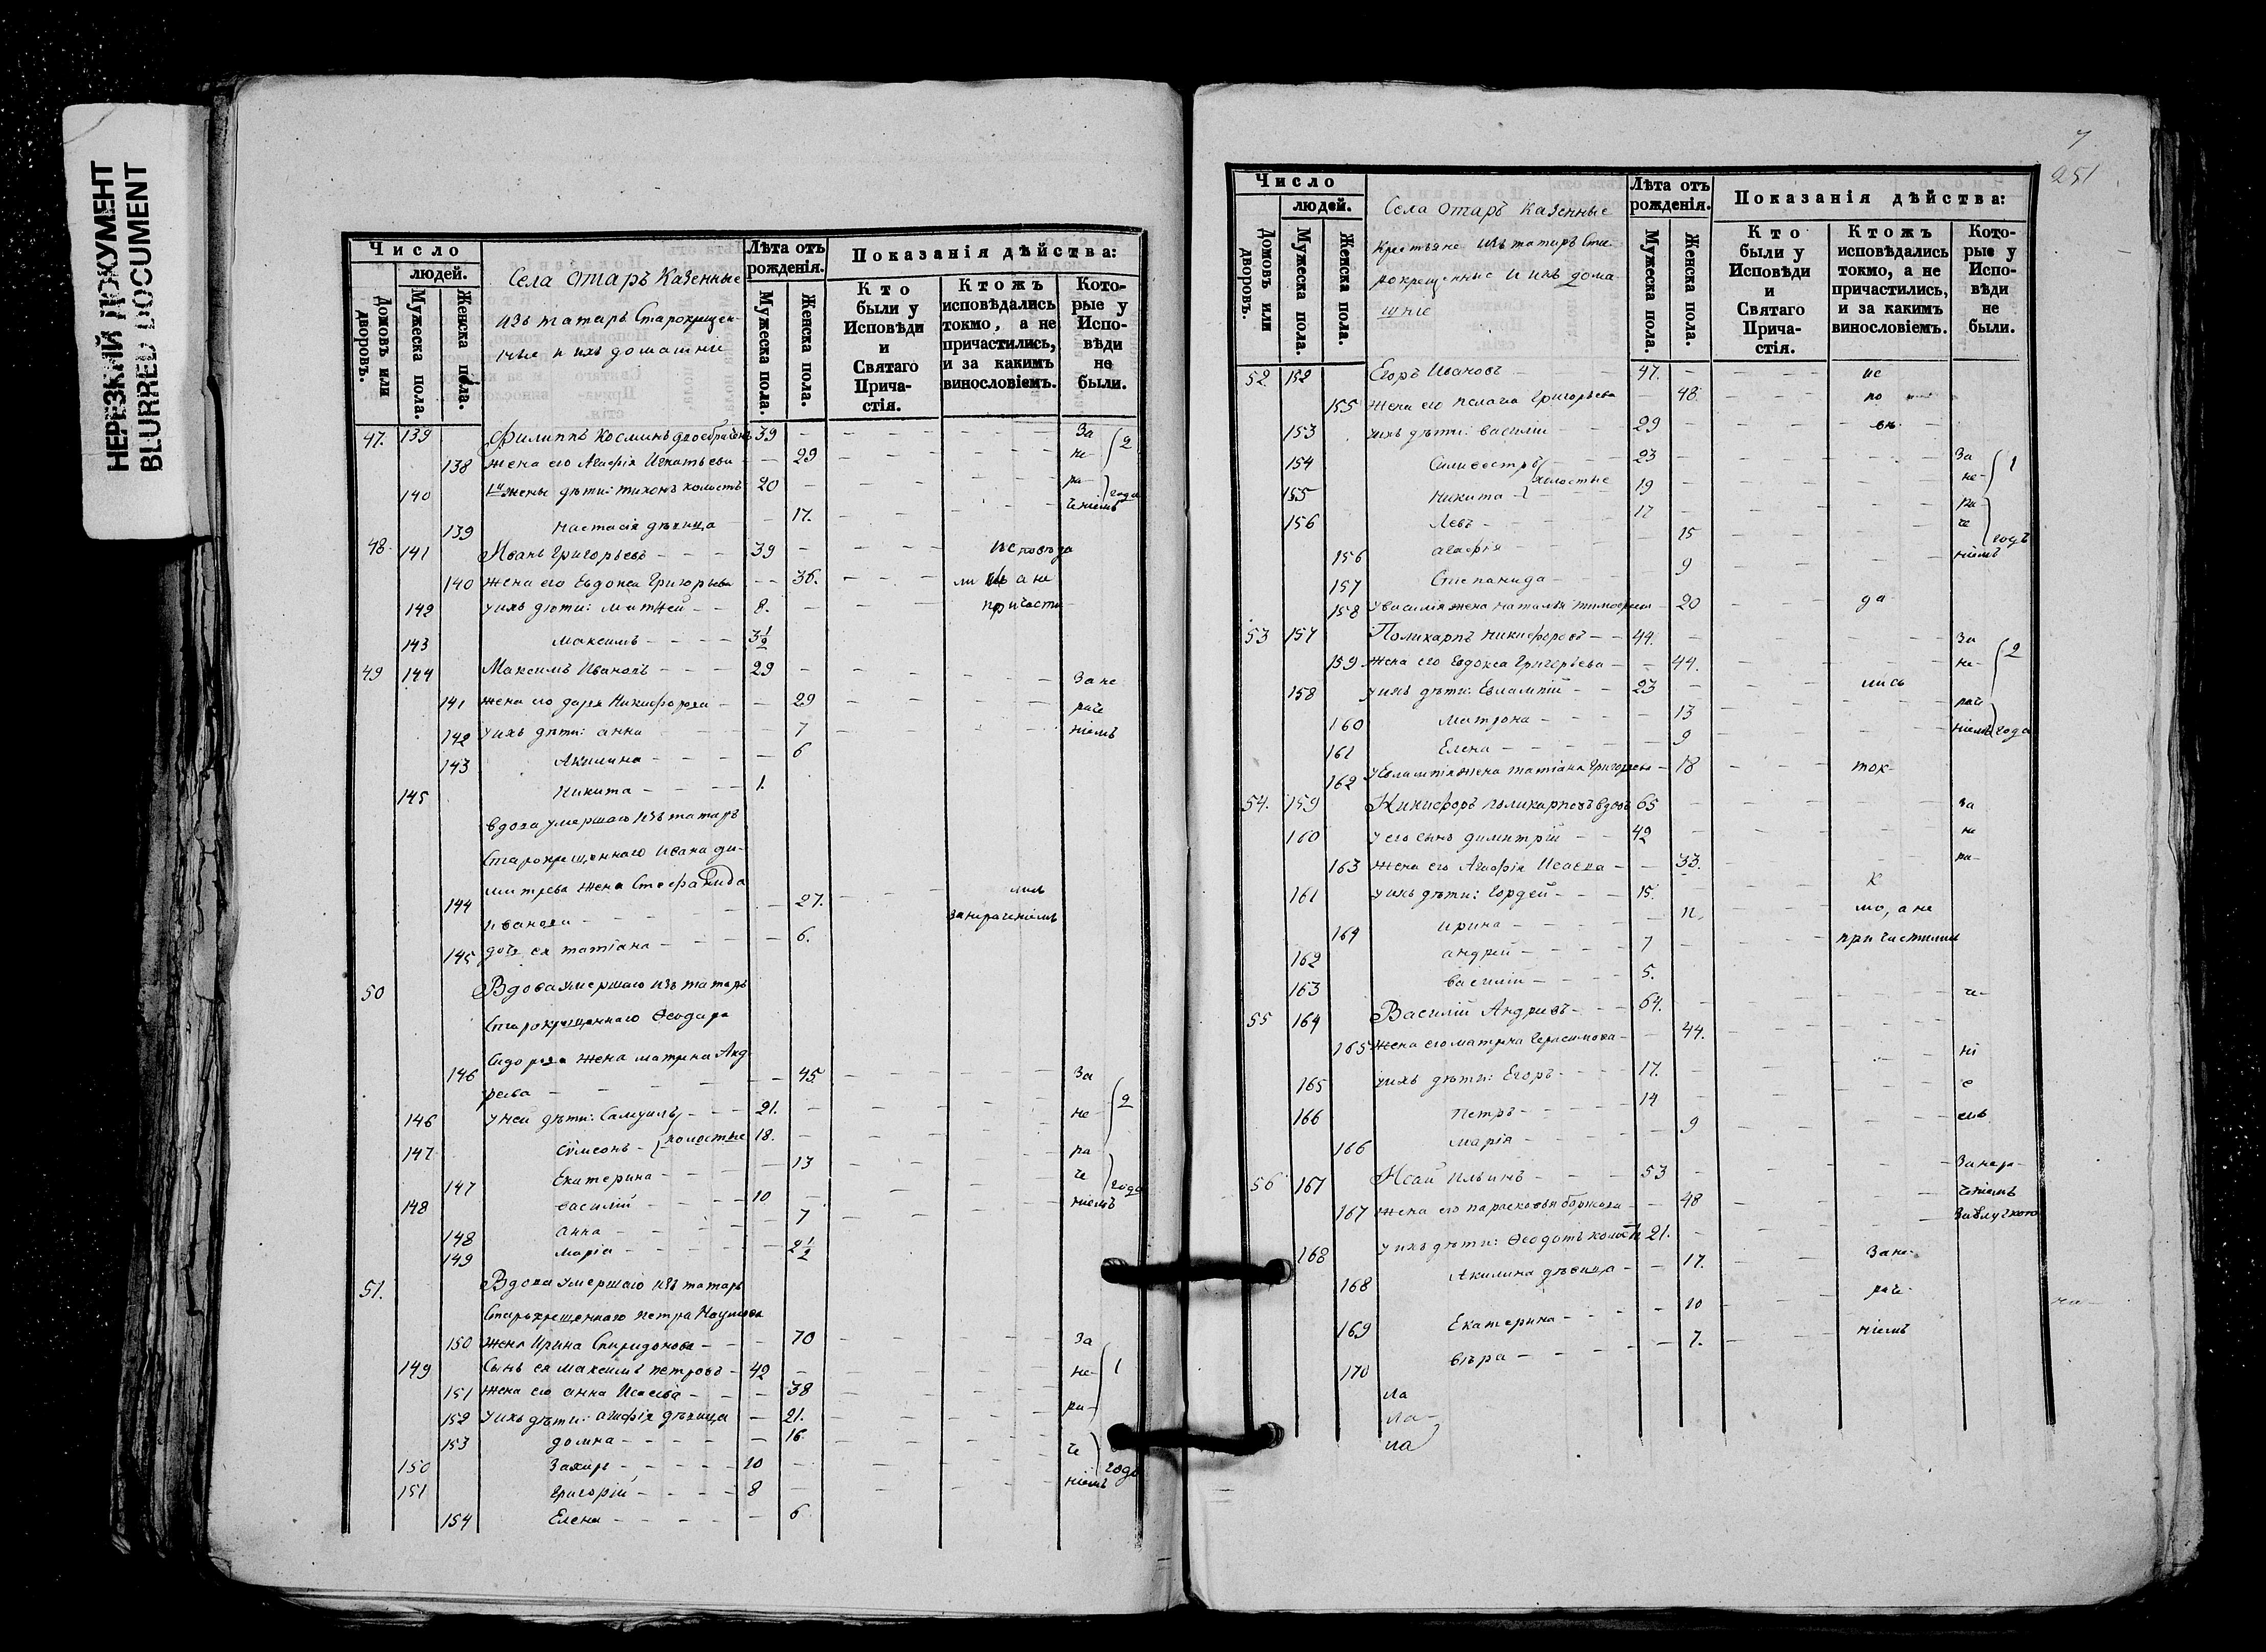 НЕРЕЗКИЙ ДОКУМЕНТ
BLURRED DOCUMENT
Число
людей.
Домовъ или дворовъ.
Мужеска пола.
Женска пола.
Села Отаръ Казенные
изъ татаръ Старокрещен-
ные и ихъ домашніе
Лѣта отъ рожденія.
Мужеска пола.
Женска пола.
Показанія дѣйства:
Кто были у Исповѣди и Святаго Прича-стія.
Ктожъ исповѣдались токмо, а не причастились, и за какимъ винословіемъ.
Кото-рые у Испо-вѣди не были.
47. 139 Филиппъ Косминъ 39 - За 2
138 жена его Агафія Игнатьева - 29 - не-
140 жены дѣти: Тихонъ холостъ 20 - ра- года
139 Настасія дѣвица - 17. - ченіемъ
48. 141 Иванъ Григорьевъ - 39 - исповѣда
140 жена его Евдокса Григорьева - 36. - а не
142 у ихъ дѣти: Матѳей - 8. - причасти
143 Максимъ - 3½
49 144 Максимъ Ивановъ - 29 - За не
141 жена его Дарья Никифорова - 29 - раче
142 у ихъ дѣти: Анна - 7 - ніемъ
143 Акилина - 6
145 Никита - 1.
вдова умершаго изъ татаръ
Старокрещеннаго Ивана Ди-
митрева жена Стефанида
144 Иванова - 27. - за нераченіемъ
145 дочь ея Татіана - 6.
50 Вдова умершаго изъ татаръ
Старокрещеннаго Ѳеодора
Сидорова жена Матрена Анд-
146 реева - 45 - За 2
146 у ней дѣти: Самуилъ - 21. - не
147 Симеонъ - холостые 18. - ра
147 Екатерина - 13 - че года
148 Василій - 10 - ніемъ
148 Анна - 7
149 Марія - 2½
51. Вдова умершаго изъ татаръ
Старокрещеннаго Петра Наумова
150 жена Ирина Спиридонова - 70 - За
149 Сынъ ея Максимъ Петровъ - 42 - не- 1
151 жена его Анна Исаева - 38 - ра-
152 у ихъ дѣти: Агафія дѣвица - 21.
153 Домна - 16. - че
150 Захаръ - 10 - года
151 Григорій - 8 - ніемъ
154 Елена - 6
7
251
Число
людей.
Домовъ или дворовъ.
Мужеска пола.
Женска пола.
Села Отаръ Казенные
Крестьяне изъ татаръ Ста-
рокрещенные и ихъ дома
шніе
Лѣта отъ рожденія.
Мужеска пола.
Женска пола.
Показанія дѣйства:
Кто были у Исповѣди и Святаго Прича-стія.
Ктожъ исповѣдались токмо, а не причастились, и за какимъ винословіемъ.
Кото-рые у Испо-вѣди не были.
52 152 Егоръ Ивановъ - 47. - ис
155 жена его Пелагія Григорьева - 48 - по
153 у ихъ дѣти: Василій - 29 - вѣ
154 Силивестръ - 23 - За 1
155 Никита - холостые 19 - не-
156 Левъ - 17 - ра
156 Агафія - 15 - че годъ
157 Степанида - 9 - ніемъ
158 у Василія жена Наталья Тимофеева - 20 - да
53 157 Поликарпъ Никифоровъ - 44. - За 2
159 жена его Евдокса Григорьева - 44. - не-
158 у ихъ дѣти: Евлампій - 23 - лись
160 Матрона - 13 - раче
161 Елена - 9 - ніемъ года
162 у Евлампія жена Татіана Григорьева - 18 - ток-
54. 159 Никифоръ Поликарповъ вдовъ 65 - За
160 у его сынъ Димитрій - 42 - не
163 жена его Агафія Исаева - 33. - ра-
161 у ихъ дѣти: Гордей - 15. - к
164 Ирина - 11. - мо, а не
162 Андрей - 7 - причастились
163 Василій - 5.
55 164 Василій Андреевъ - 64. - че-
165 жена его Матрена Герасимова - 44.
165 у ихъ дѣти: Егоръ - 17. - ні
166 Петръ - 14 - е
166 Марія - 9 - емъ
56 167 Исай Ильинъ - 53 - За нера-
167 жена его Парасковья Борисова - 48 - ченіемъ
168 у ихъ дѣти: Ѳеодотъ холостъ 21. - За отлучкою
168 Акилина дѣвица - 17. - За не-
169 Екатерина - 10 - раче-
170 Вѣра - 7. - ніемъ
ла
ла-
ла